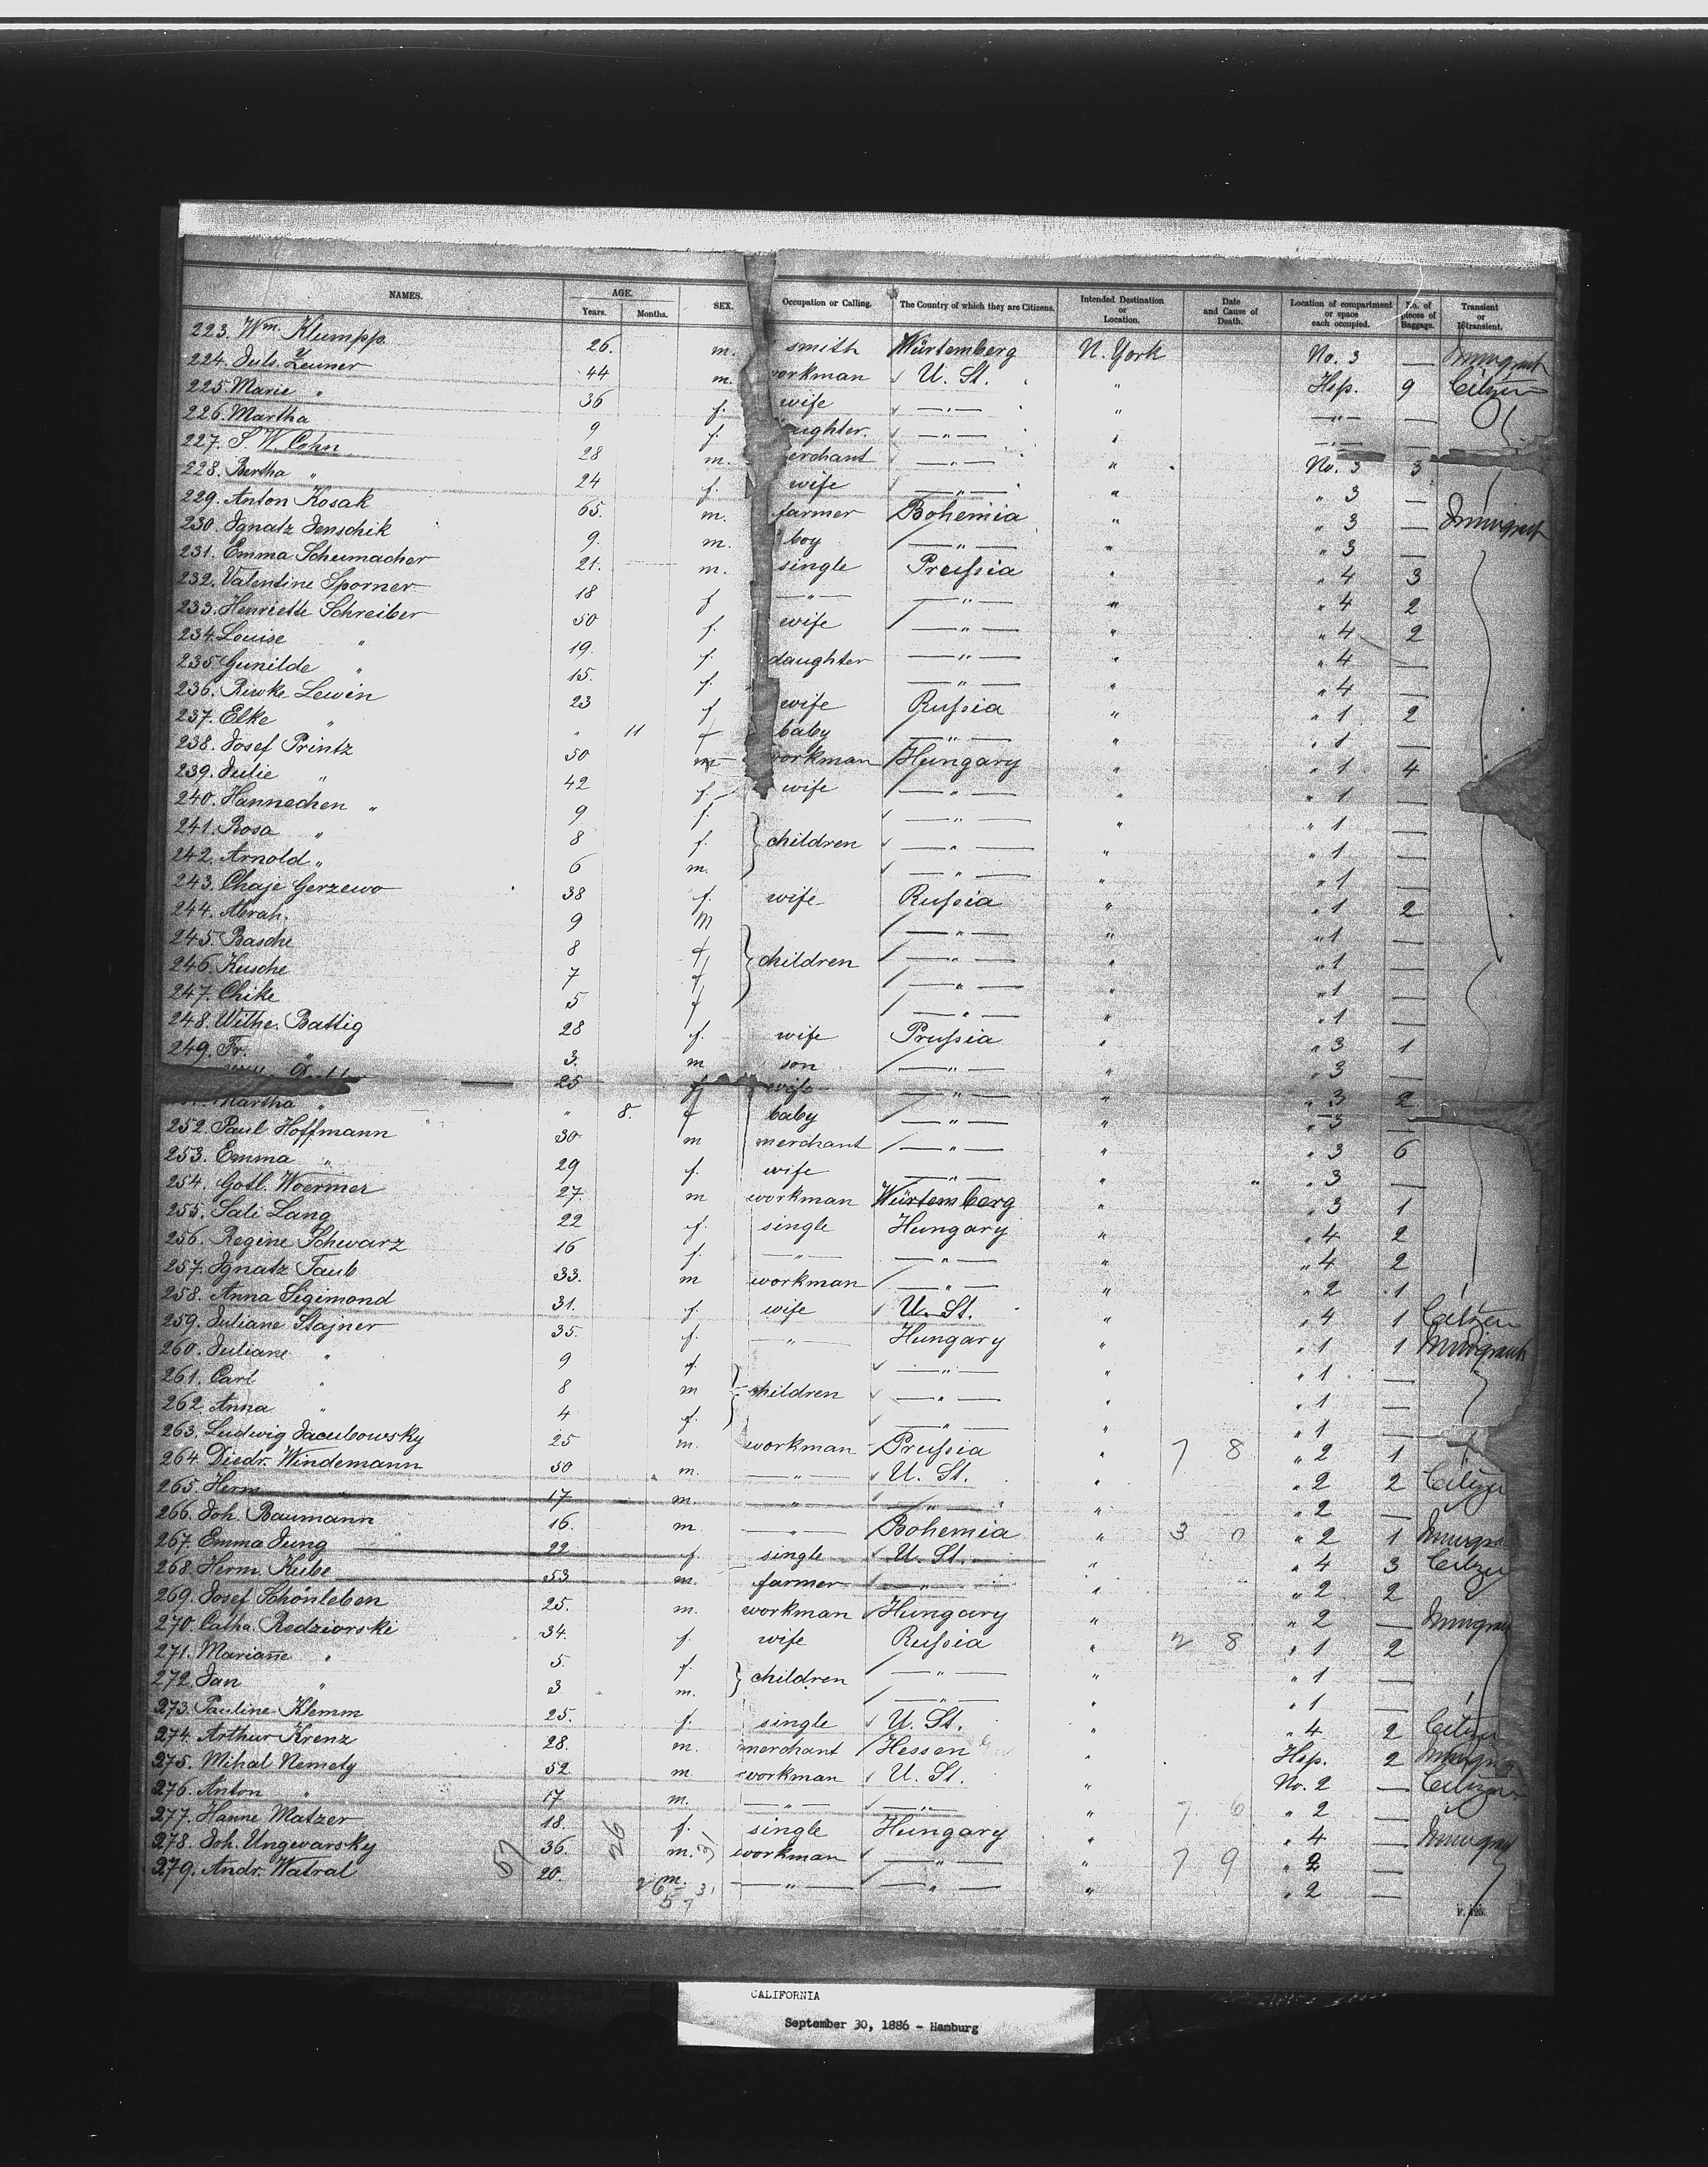 NAMES. AGE. Years. Months. SEX. Occupation or Calling. The Country of which they are Citizens. Intended Destination or Location. Date and Cause of Death. Location of compartment or space each occupied. No. of pieces of Baggage. Transient or
223. Wm. Klumpp 26. m. smith Würtemberg N. York No. 3 — Immigrant
224. Juls. Zeuner 44 m. workman U. St. " Hsp. 9 Citizen
225. Marie " 36 f. wife —"— " —"— —
226. Martha 9 f. daughter. —"— " —"— —
227. S W. Cohn 28 m. merchant —"— " No. 3 3
228. Bertha " 24 f. wife —"— " " 3 —
229. Anton Kosak 65. m. farmer Bohemia " " 3 — Immigrant
230. Ignatz Jenschik 9. m. boy —"— " " 3 —
231. Emma Schumacher 21. m. single Preussia " " 4 3
232. Valentine Sporner 18 f —"— —"— " " 4 2
233. Henriette Schreiber 50 f. wife —"— " " 4 2
234. Louise " 19. f. daughter —"— " " 4 —
235. Gunilde " 15. f. —"— " " 4 —
236. Riwke Lewin 23 f wife Russia " " 1 2
237. Elke " " 11 f baby —"— " " 1 —
238. Josef Printz 50 m workman Hungary " " 1 4
239. Julie " 42 f. wife —"— " " 1 —
240. Hannechen " 9 f. —"— " " 1 —
241. Rosa " 8 f. children —"— " " 1 —
242. Arnold " 6 m. —"— " " 1 —
243. Chaje Gerzewo 38 f. wife Russia " " 1 2
244. Abrah. 9 m —"— " " 1 —
245. Basche 8 f children —"— " " 1 —
246. Kusche 7 f —"— " " 1 —
247. Chike 5 f —"— " " 1 —
248. Wilhe. Battig 28 f. wife Prussia " " 3 1
249. Fr. " 3. m son —"— " " 3 —
25 f wife —"— " " 3 2
Martha " " 8. f baby —"— " " 3 —
252. Paul Hoffmann 30 m merchant —"— " " 3 6
253. Emma " 29 f. wife —"— " " 3 —
254. Gotl. Woermer 27. m workman Würtemberg " " 3 1
255. Sali Lang 22 f. single Hungary " " 4 2
256. Regine Schwarz 16 f. —"— —"— " " 4 2
257. Ignatz Taub 33. m workman —"— " " 2 1
258. Anna Sigimond 31. f. wife U. St. " " 4 1 Citizen
259. Juliane Stajner 35. f. —"— Hungary " " 1 1 Immigrant
260. Juliane " 9 f —"— " " 1 —
261. Carl " 8 m children —"— " " 1 —
262. Anna " 4 f. —"— " " 1 —
263. Ludwig Jacubowsky 25 m. workman Prussia " 7 8 " 2 1
264. Diedr. Windemann 50 m. —"— U. St. " " 2 2 Citizen
265. Herm. " 17 m. —"— —"— " " 2 —
266. Joh. Baumann 16. m. —"— Bohemia " 3 0 " 2 1
267. Emma Jung 22 f. single U. St. " " 4 3 Citizen
268. Herm. Kube 53 m. farmer —"— " " 2 2
269. Josef Schönleben 25. m. workman Hungary " " 2 —
270. Catha. Redziorski 34. f. wife Russia " 2 8 " 1 2
271. Mariane " 5. f. children —"— " " 1 —
272. Jan " 3 m. —"— " " 1 —
273. Pauline Klemm 25. f. single U. St. " " 4 2 Citizen
274. Arthur Krenz 28. m. merchant Hessen " Hsp. 2
275. Mihal Nemety 52. m workman U. St. " No. 2 — Citizen
276. Anton " 17 m. —"— —"— " 7 6 " 2 —
277. Hanne Matzer 18. f. single Hungary " " 4 —
278. Joh. Ungwarsky 36. m. workman —"— " 7 9 " 2 —
279. Andr. Watral 20. m. —"— —"— " " 2 —
57 26 31
26 31
57
CALIFORNIA
September 30, 1886 - Hamburg